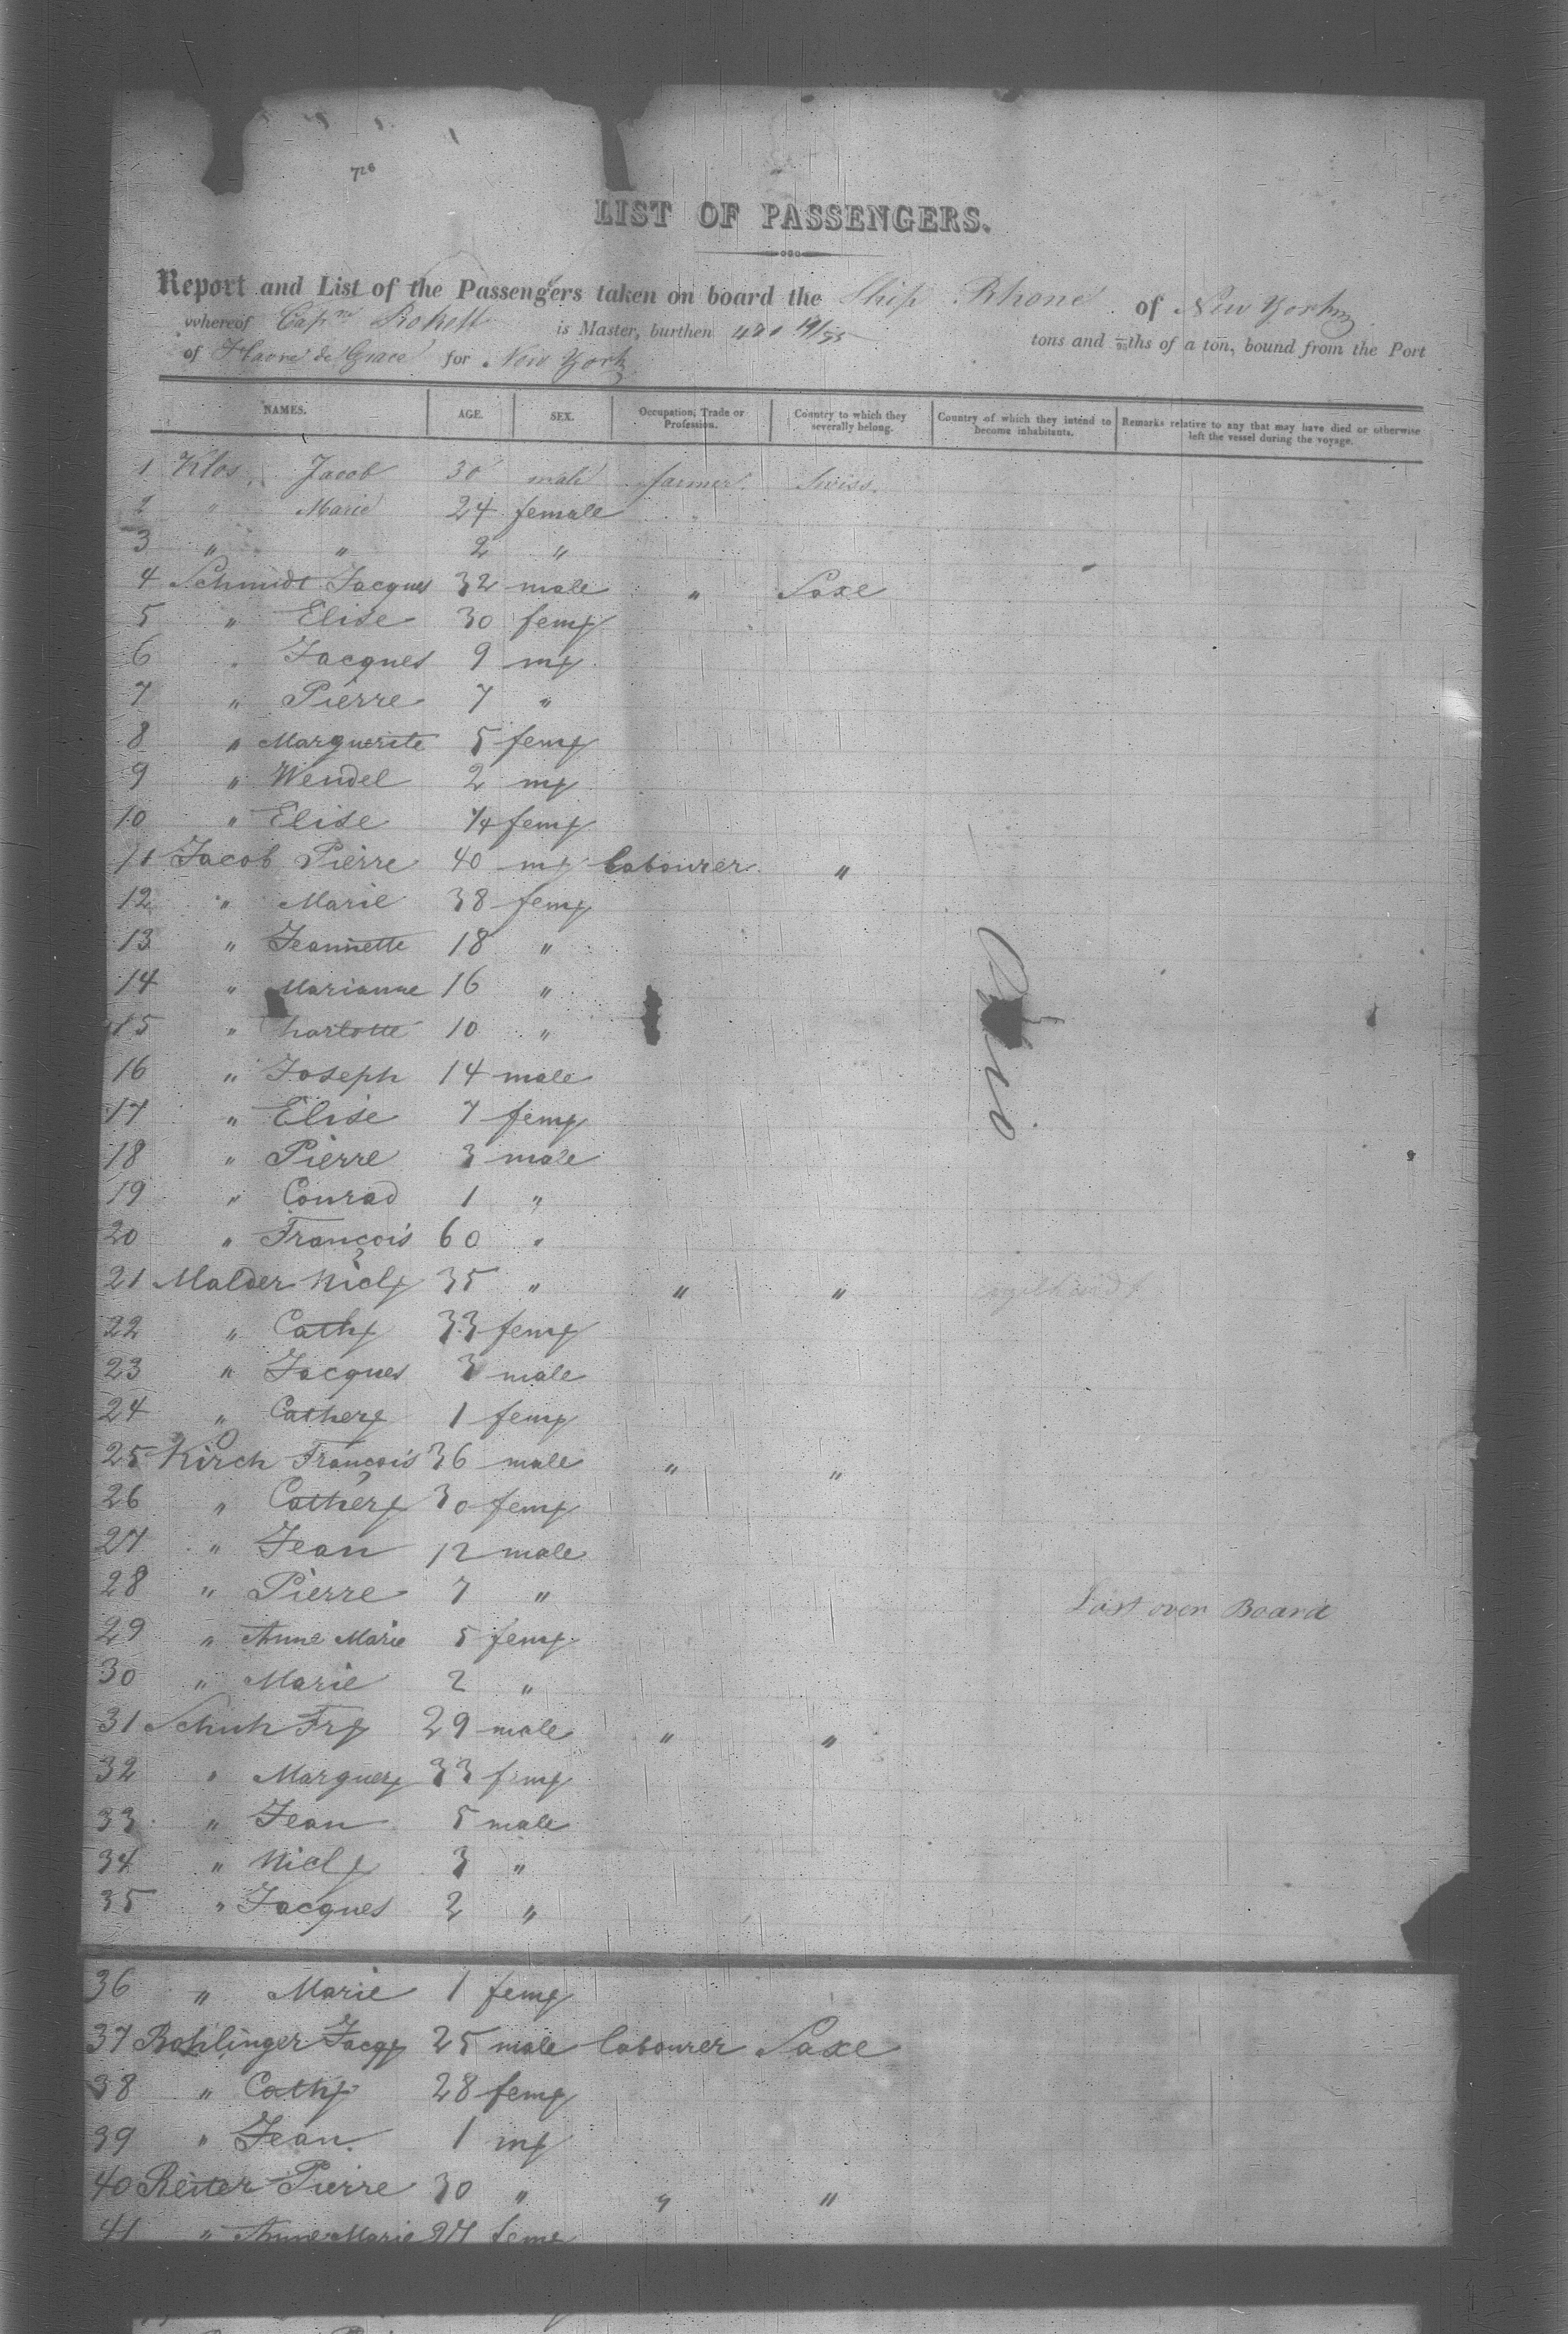 726
LIST OF PASSENGERS.
Report and List of the Passengers taken on board the Ship Rhone of New York
whereof Capn Rokett is Master, burthen 471 19/95 tons and /95ths of a ton, bound from the Port
of Havre de Grace for New York
NAMES. AGE. SEX. Occupation, Trade or Profession. Country to which they severally belong. Country of which they intend to become inhabitants. Remarks relative to any that may have died or otherwise left the vessel during the voyage.
1 Klos Jacob 30 male farmer Swiss
2 " Marie 24 female
3 " " 2 "
4 Schmidt Jacques 32 male " Saxe
5 " Elise 30 fem
6 " Jacques 9 m
7 " Pierre 7 "
8 " Marguerite 5 fem
9 " Wendel 2 m
10 " Elise 1/4 fem
11 Jacob Pierre 40 m labourer "
12 " Marie 38 fem
13 " Jeannette 18 "
14 " Marianne 16 "
15 " harlotte 10 "
16 " Joseph 14 male
17 " Elise 7 fem
18 " Pierre 3 male
19 " Conrad 1 "
20 " François 60 "
21 Malder Nicl 35 " " "
22 " Cath 33 fem
23 " Jacques 3 male
24 " Cather 1 fem
25 Kirch François 36 male " "
26 " Cather 30 fem
27 " Jean 12 male
28 " Pierre 7 " Lost over Board
29 " Anne Marie 5 fem
30 " Marie 2 "
31 Schuh Fr 29 male " "
32 " Marguer 33 fem
33 " Jean 5 male
34 " Nicl 3 "
35 " Jacques 2 "
36 " Marie 1 fem
37 Bohlinger Jacq 25 male labourer Saxe
38 " Cath 28 fem
39 " Jean 1 m
40 Reiter Pierre 30 " " "
41 " Anne Marie 27 fem